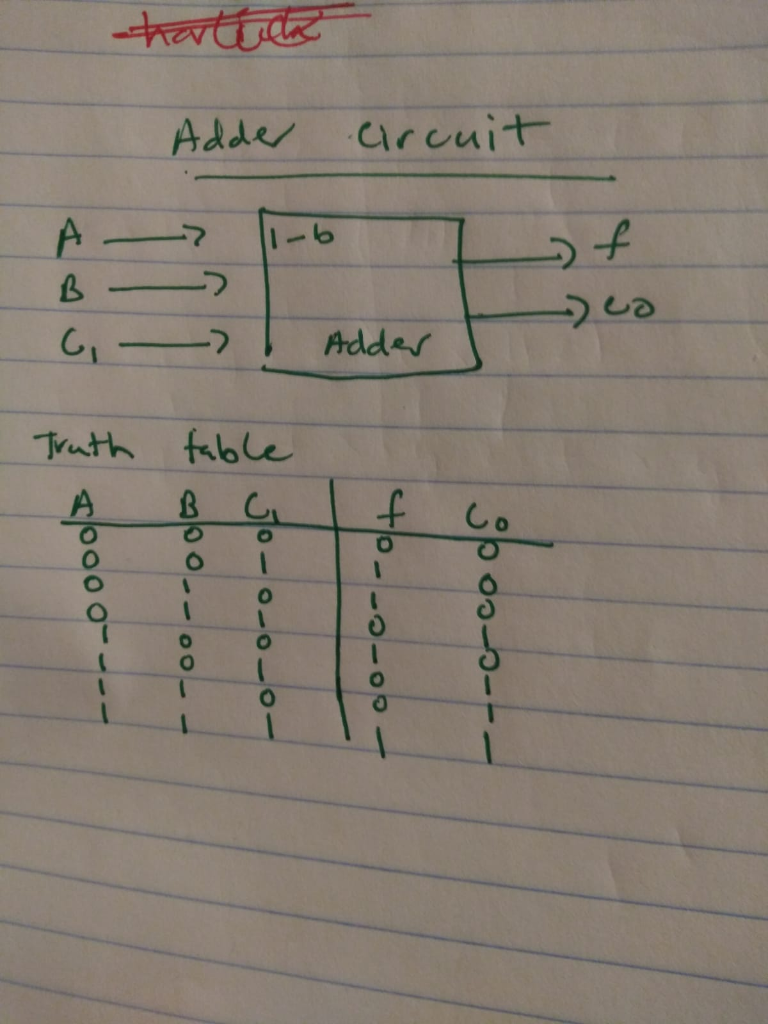 Adder circuit
A 1-b f
B
C₁ Adder C0
Truth table
A B C₁ f C₀
0 0 0 0 0
0 0 1 1 0
0 1 0 1 0
0 1 1 0 1
1 0 0 1 0
1 0 1 0 1
1 1 0 0 1
1 1 1 1 1